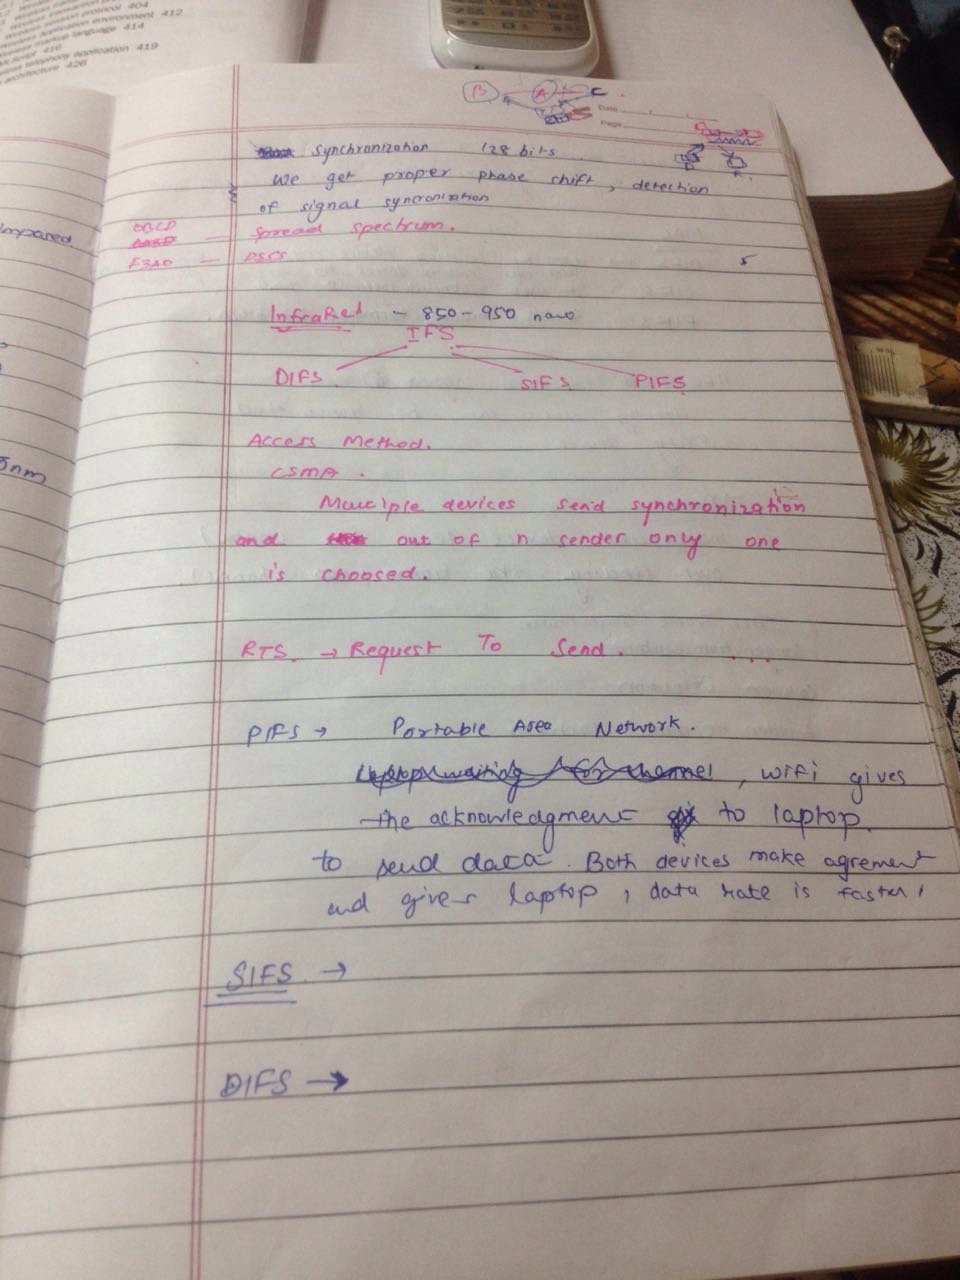 session protocol 404
application environment 412
markup language 414
416
telephony application 419
architecture 426
B A C
Date
Page
Synchronization 128 bits
We get proper phase shift, detection
of signal syncronization
0BCD — Spread spectrum.
F3A0 —
InfraRed - 850-950 nano
IFS
DIFS SIFS PIFS
Access Method.
CSMA.
Multiple devices send synchronization
and out of n sender only one
is choosed.
RTS. → Request To Send. ...
PIFS → Portable Area Network.
Laptop waiting for channel, wifi gives
the acknowledgment to laptop.
to send data. Both devices make agrement
and gives laptop, data rate is faster,
SIFS →
DIFS →
mpared
5nm